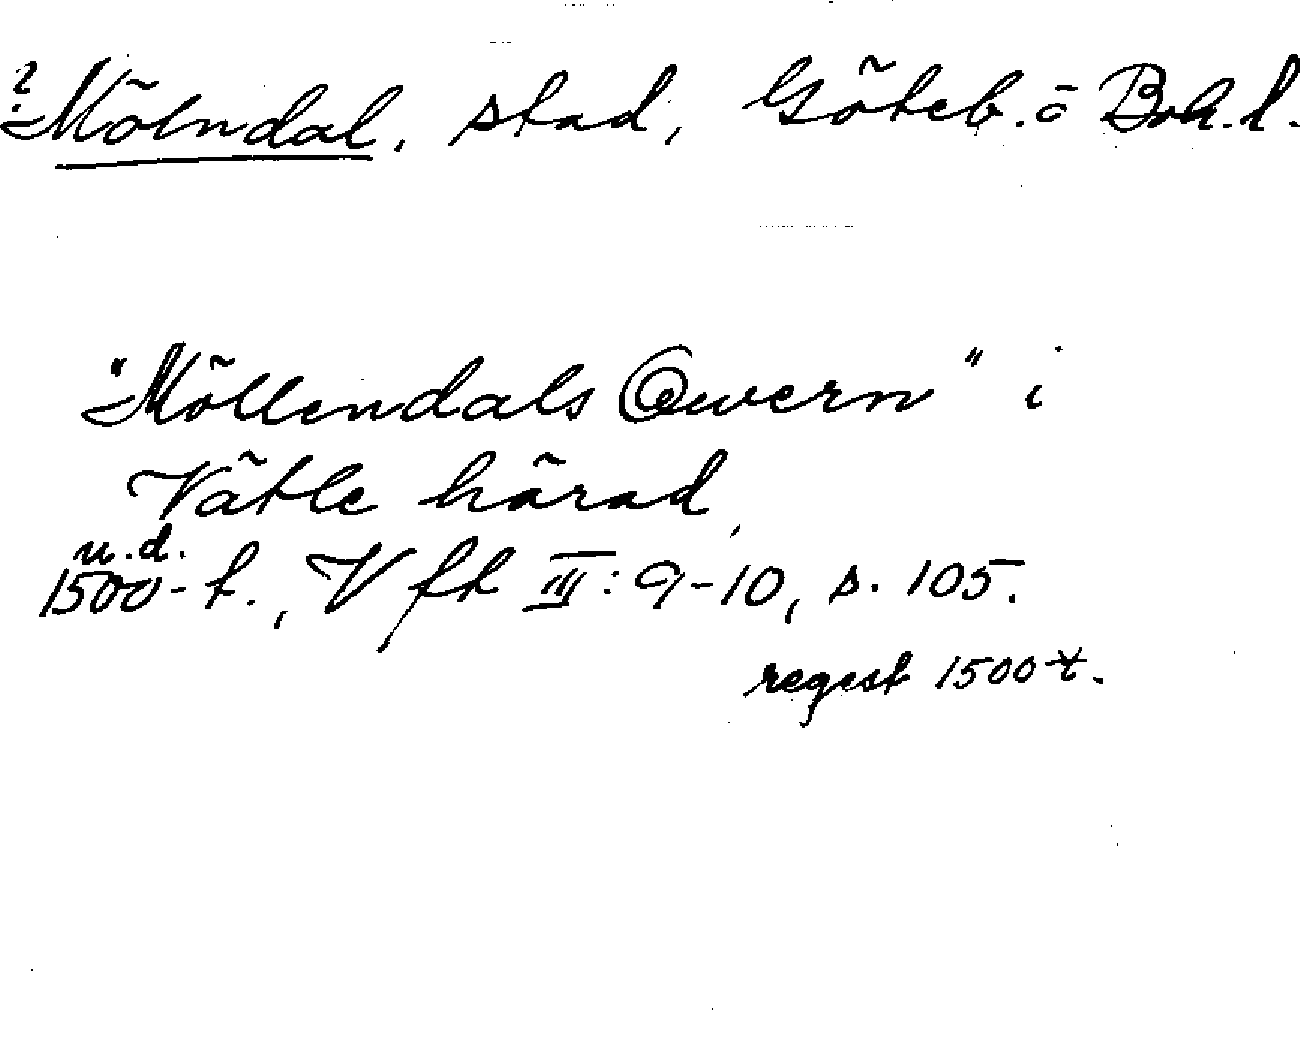 ? Mölndal, stad, Göteb. o Boh. l.
"Möllendals Qwern" i
Vätle härad,
u.d.
1500-t., Vft III: 9-10, s. 105.
regest 1500 t.